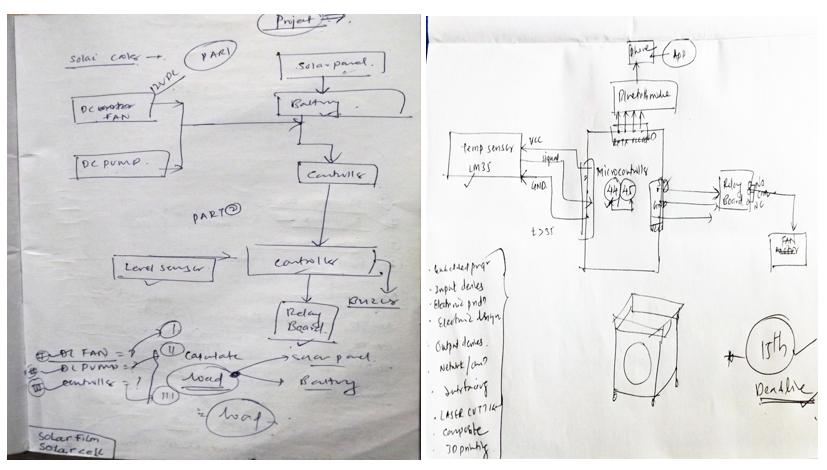 Project
Solar cooler →
PART 1
12V DC
Solar panel.
Battery
DC
FAN
DC PUMP.
Controller
PART ②
Level sensor
Controller
Buzzer
Relay
Board
I
DC FAN = ?
II
Calculate
DC PUMP = ?
III
Controller = ?
load
Solar panel
Battery
III
= load
Solar film
Solar cell
Phone
APP
Bluetooth module
Temp sensor
LM35
VCC
signal
GND
t > 35
Microcontroller
44
45
GND
Relay
Board
NO
NC
FAN
Embedded progr
Input devices
Electronic prodn
Electronic design
Output devices
Network/
Interfacing
LASER CUTTING
Composite
3D printing
15th
Deadline